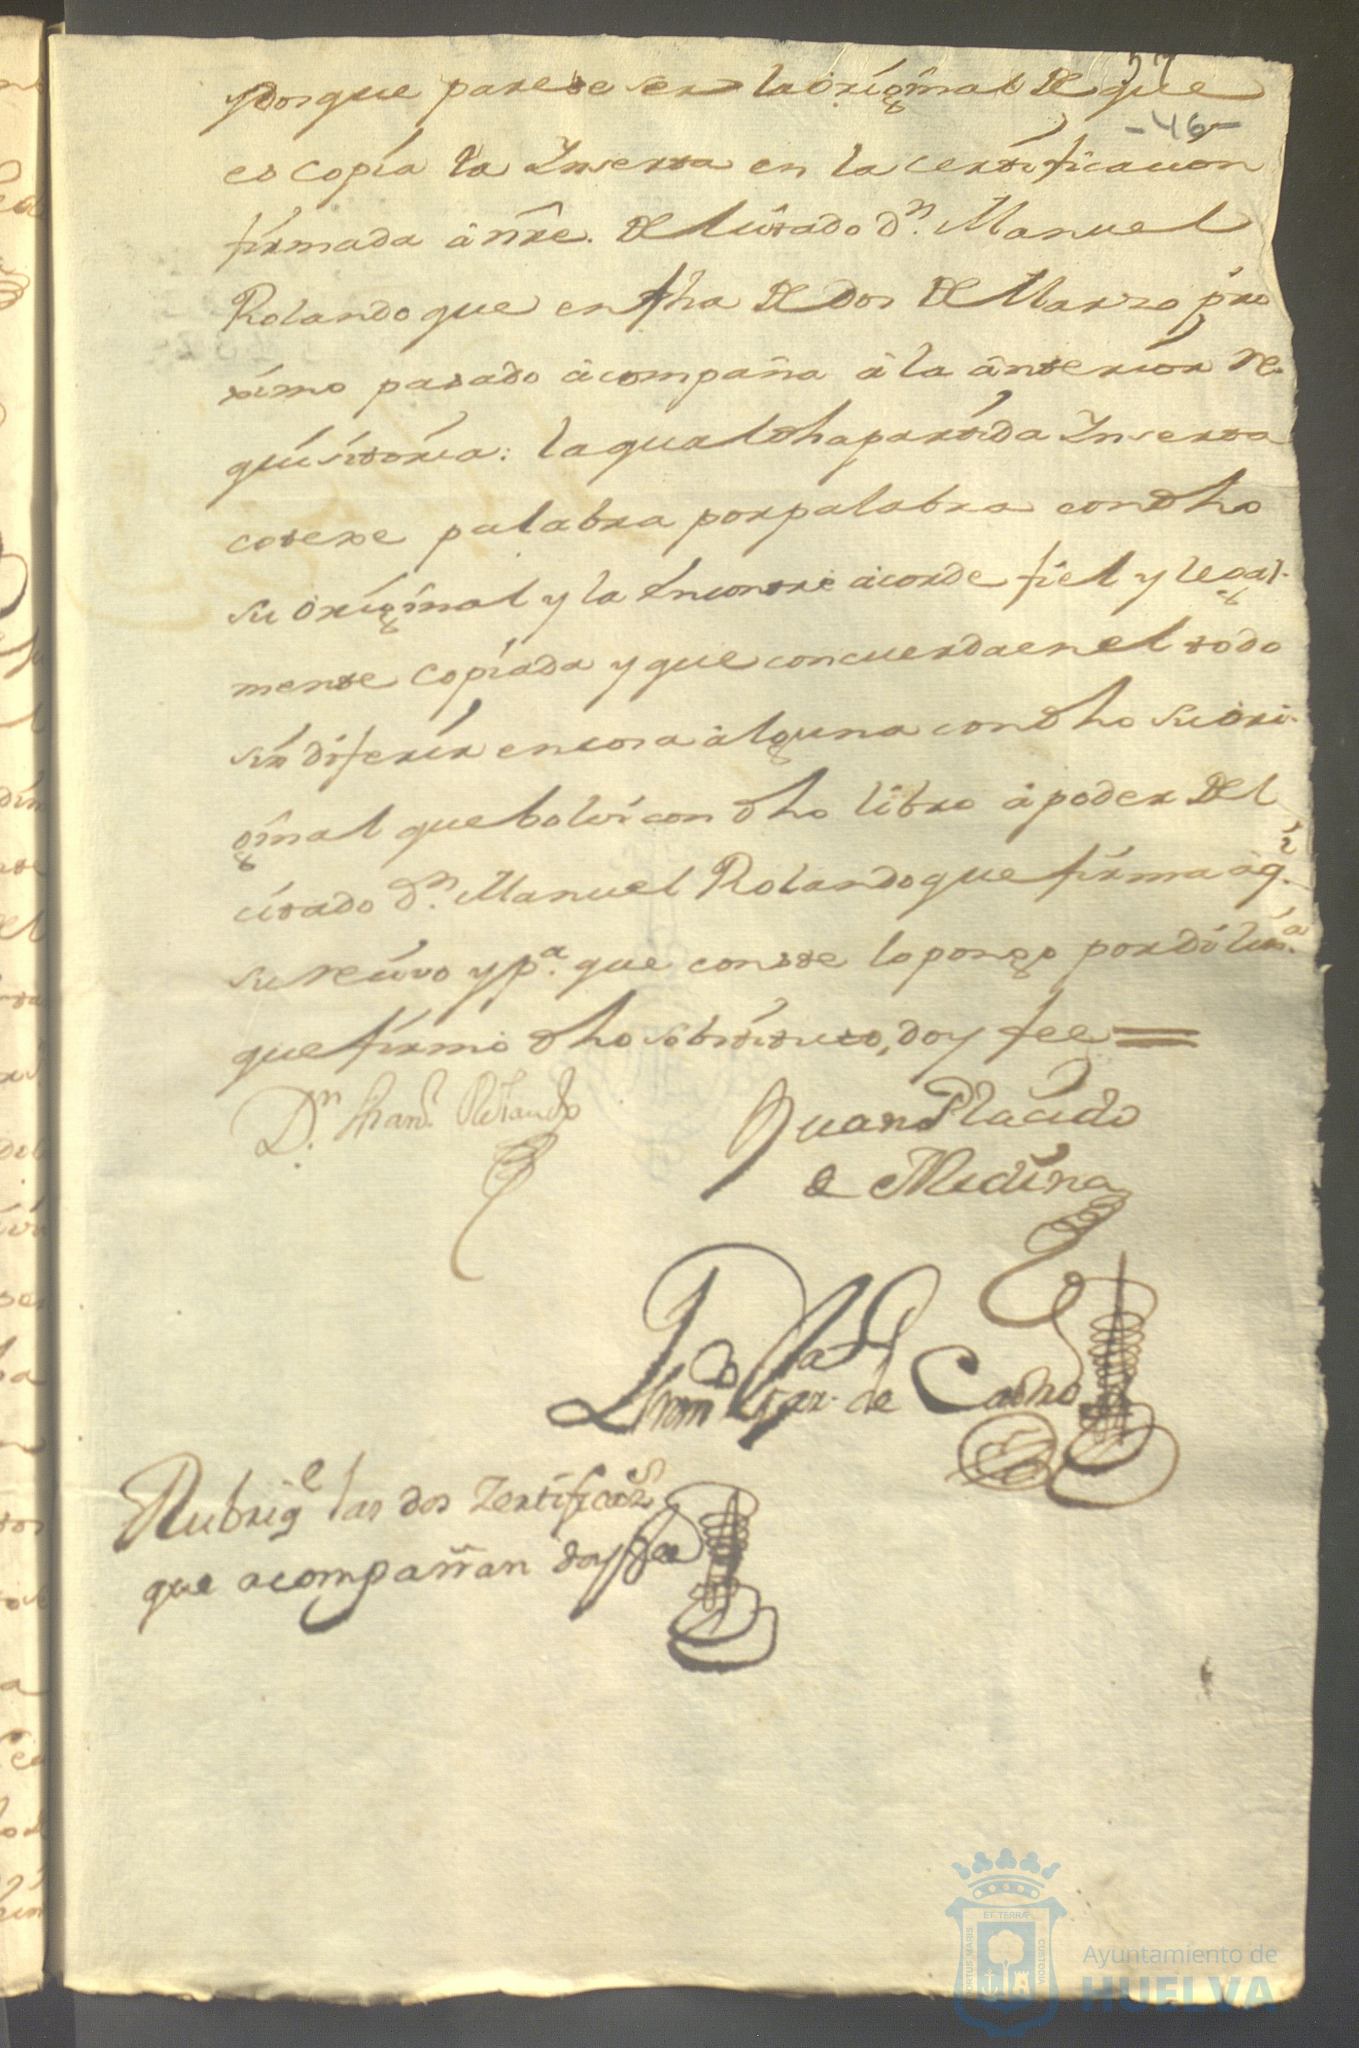 57
-46-
porque parese ser la original de que
es copia la Inserta en la certificacion
firmada â nre. del citado dn. Manuel
Rolando que en fha de dos de Marzo pro
ximo pasado acompaña â la anterior re-
quisitoria: la qual dha partida Inserta
cotexe palabra por palabra con dho
su original y la encontre acorde fiel y legal-
mente copiada y que concuerda en el todo
sin diferir en cosa alguna con dho su ori-
ginal que bolvi con dho libro â poder del
citado dn. Manuel Rolando que firma aq.i
su recivo y pa. que conste lo pongo por dilixa.
que firmó dho sobstituto, doy fee =
Dn. Manl. Rolando
Juan Placido
de Medina
de Castro
Rubrique las dos Zertificazs
que acompañan doy fee
PORTUS MARIS
ET TERRÆ
CUSTODIA
Ayuntamiento de
HUELVA